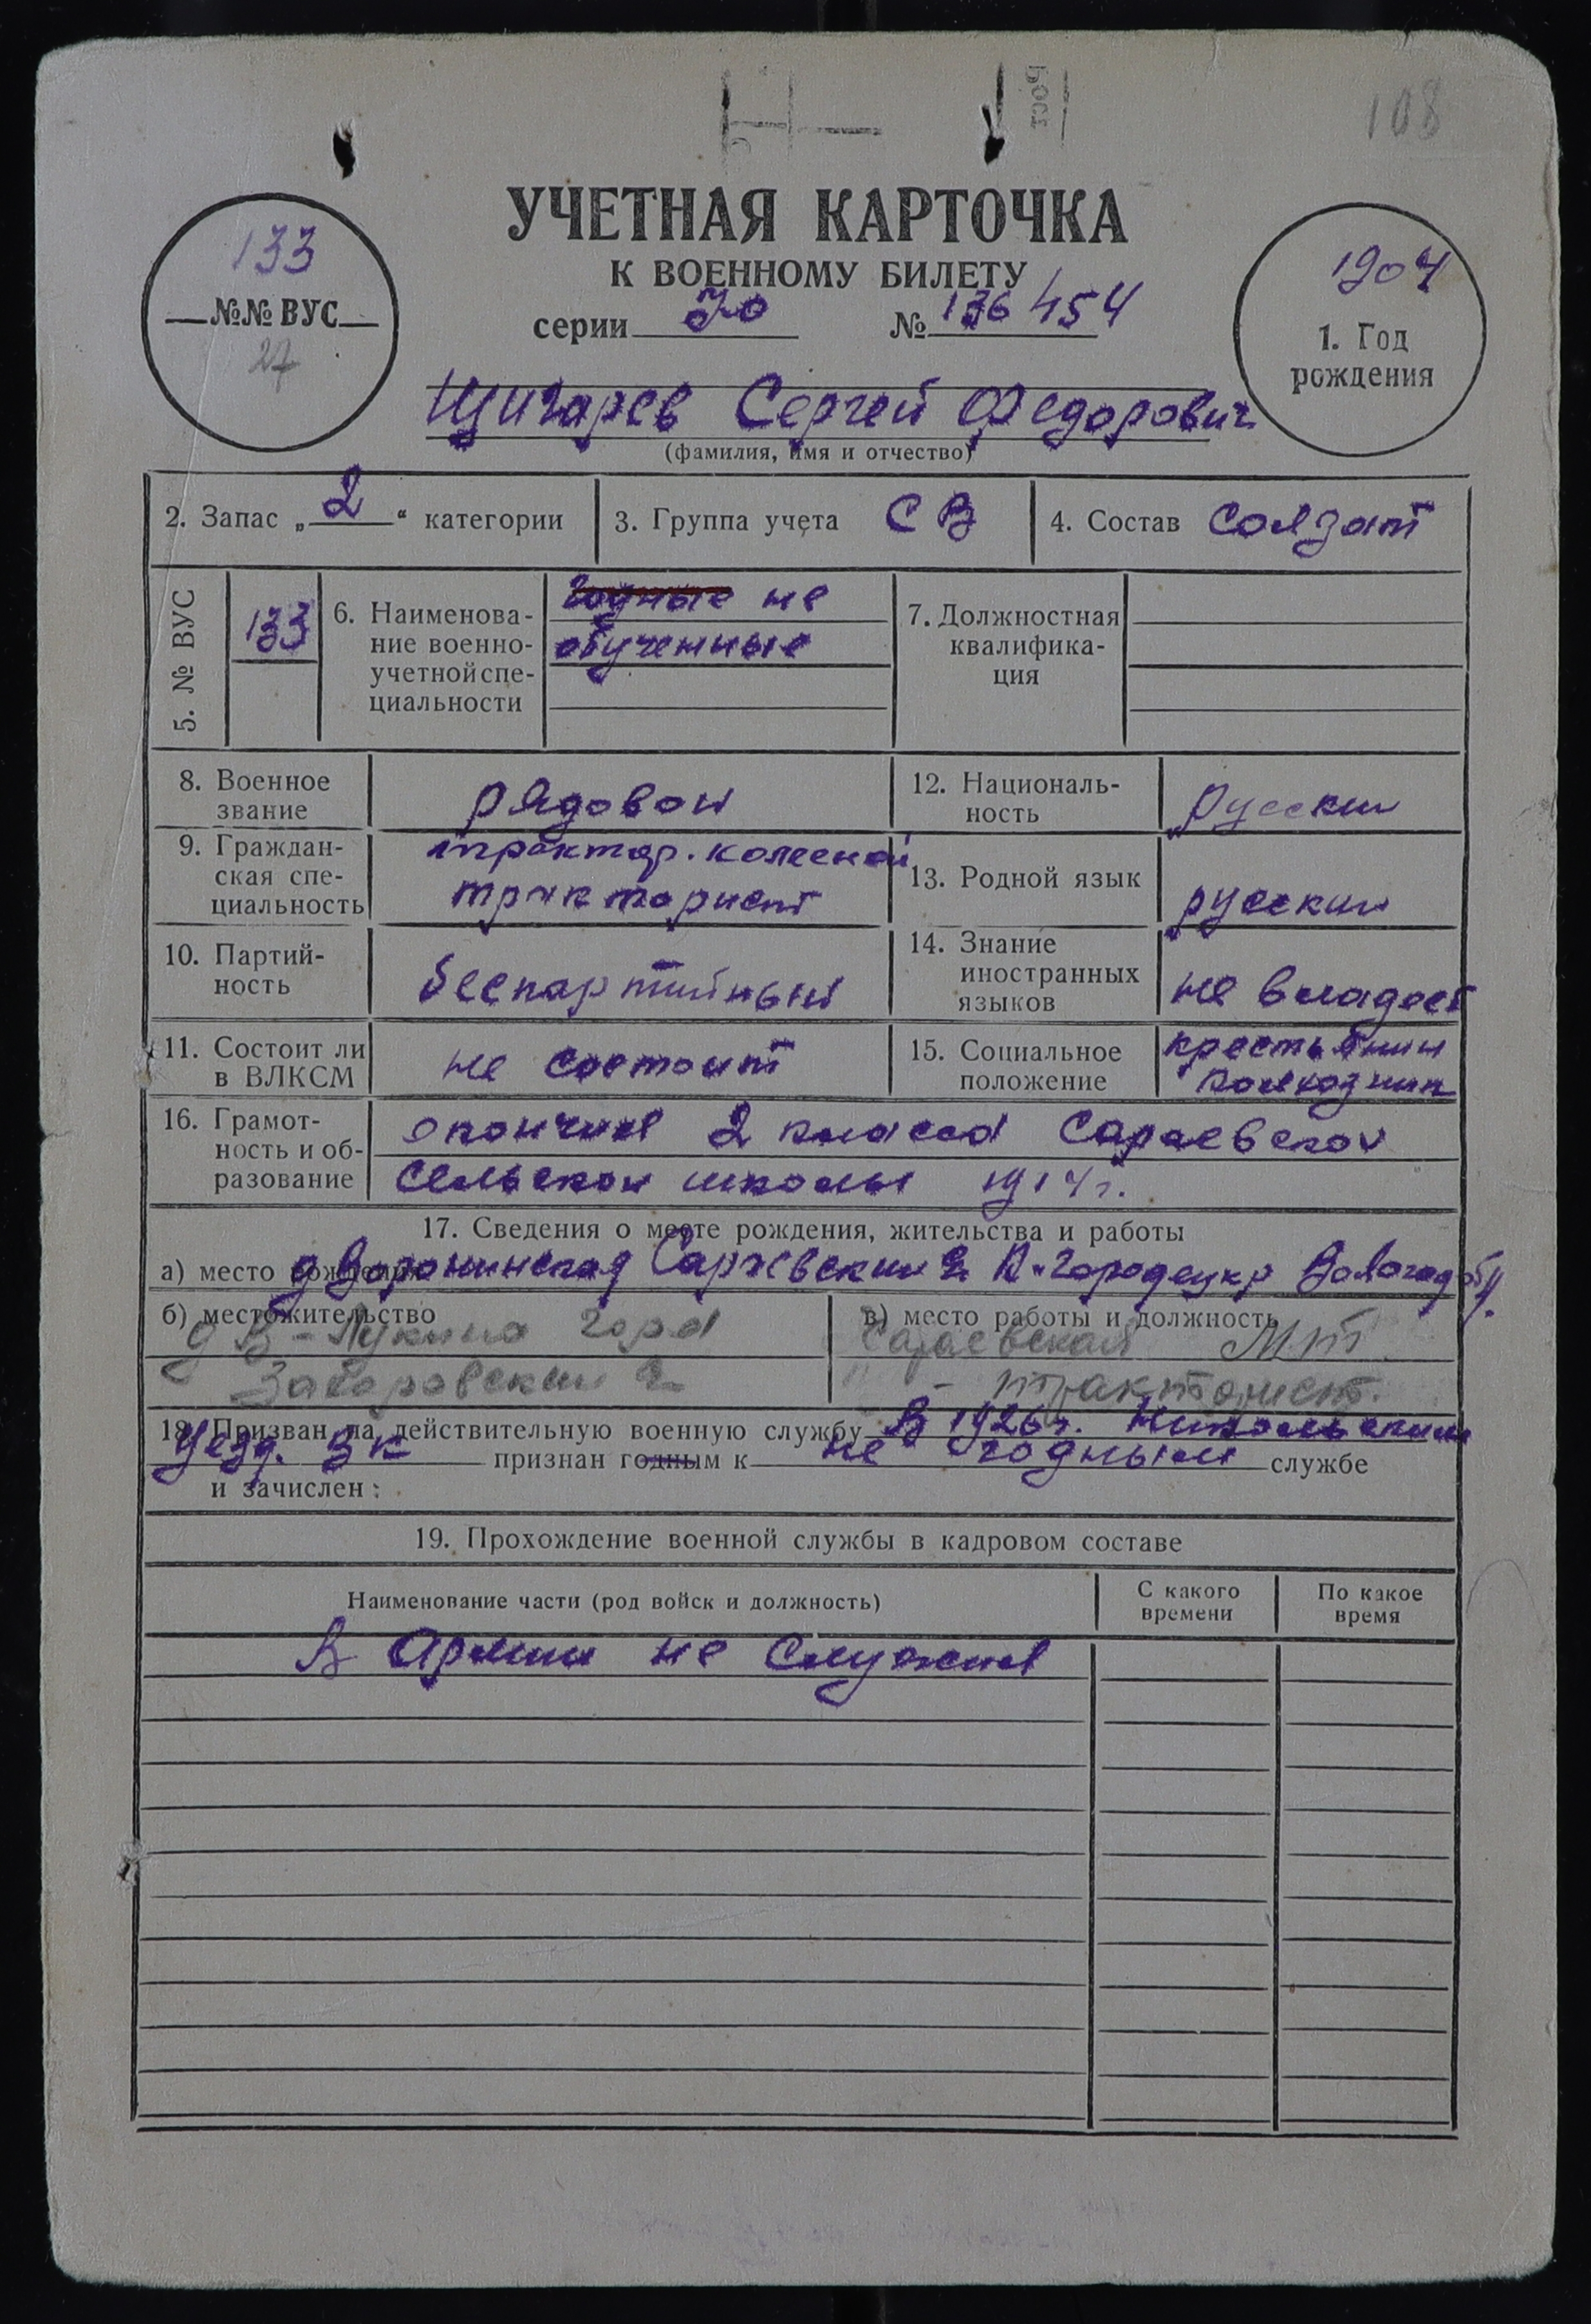 108
УЧЕТНАЯ КАРТОЧКА
К ВОЕННОМУ БИЛЕТУ
серии 70 № 136454
133
№№ ВУС
27
1904
1. Год
рождения
Щигарев Сергей Федорович
(фамилия, имя и отчество)
2. Запас „2“ категории
3. Группа учета СВ
4. Состав Солдат
5. № ВУС
133
6. Наименова-
ние военно-
учетной спе-
циальности
годные не
обученные
7. Должностная
квалифика-
ция
8. Военное
звание
рядовой
9. Граждан-
ская спе-
циальность
трактор. колесной
тракторист
10. Партий-
ность
беспартийный
11. Состоит ли
в ВЛКСМ
не состоит
12. Националь-
ность
Русский
13. Родной язык
русский
14. Знание
иностранных
языков
не владеет
15. Социальное
положение
крестьянин
колхозник
16. Грамот-
ность и об-
разование
окончил 2 класса Сараевской
Сельской школы 1914 г.
17. Сведения о месте рождения, жительства и работы
а) место рождения д Воронинская Сараевский К-Городецкр Вологод обл.
б) местожительство
д В-Лукина гора
Заборовский
в) место работы и должность
Сараевская МТС
- тракторист.
18. Призван на действительную военную службу В 1926 г. Никольским
Уезд. ВК признан годным к не годным службе
и зачислен:
19. Прохождение военной службы в кадровом составе
Наименование части (род войск и должность)
С какого
времени
По какое
время
В Армии не служил